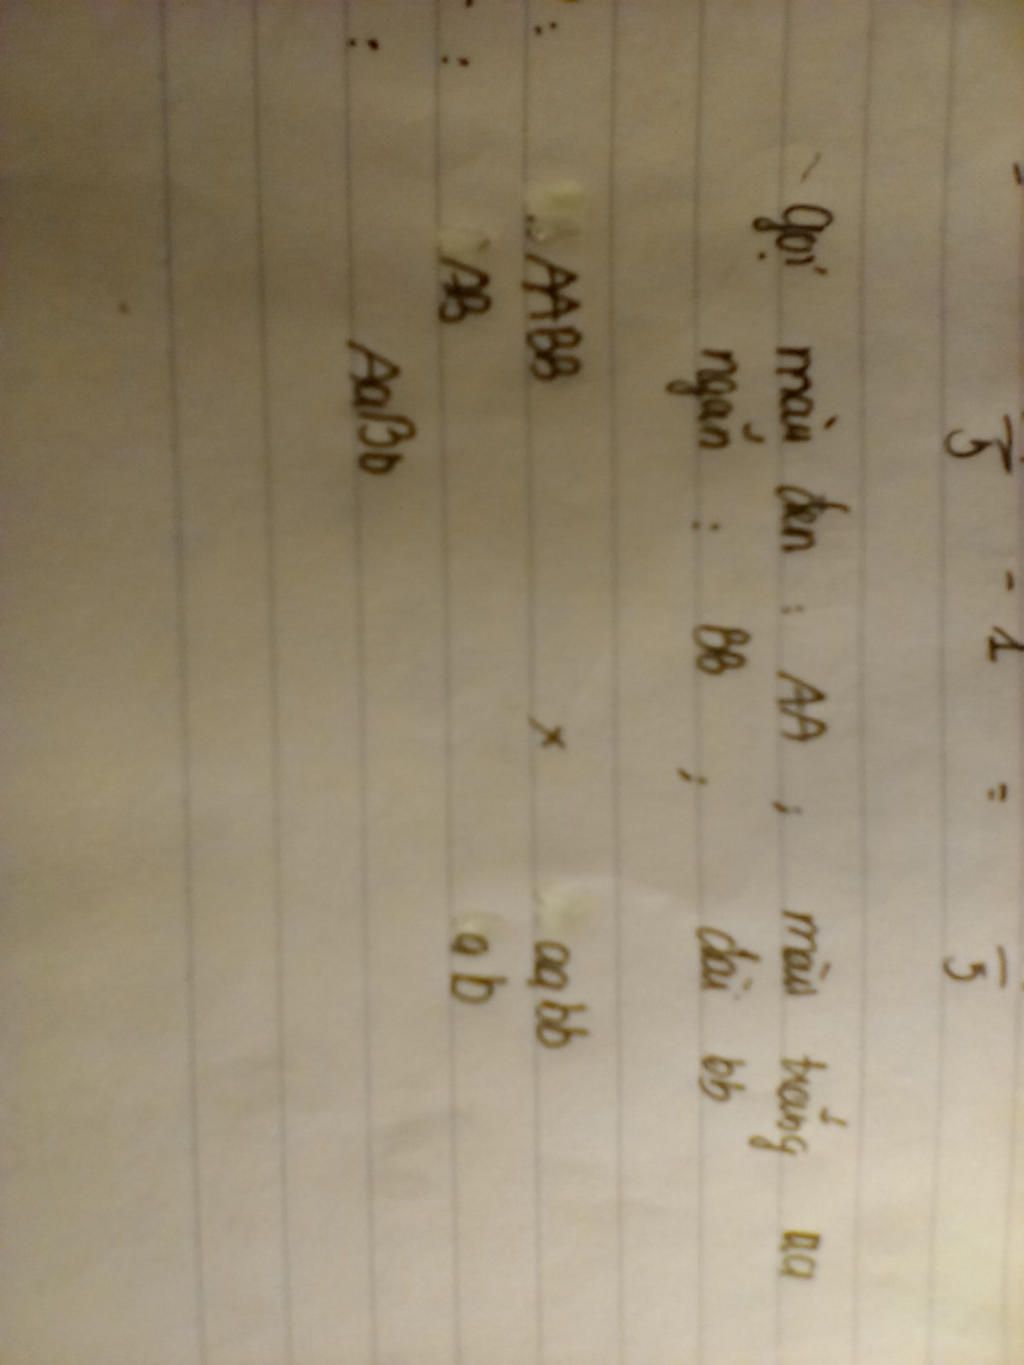 5 - 1 = 5
- gọi màu đen : AA ; màu trắng aa
ngắn : BB ; dài bb
: AABB x aabb
: AB ab
: AaBb